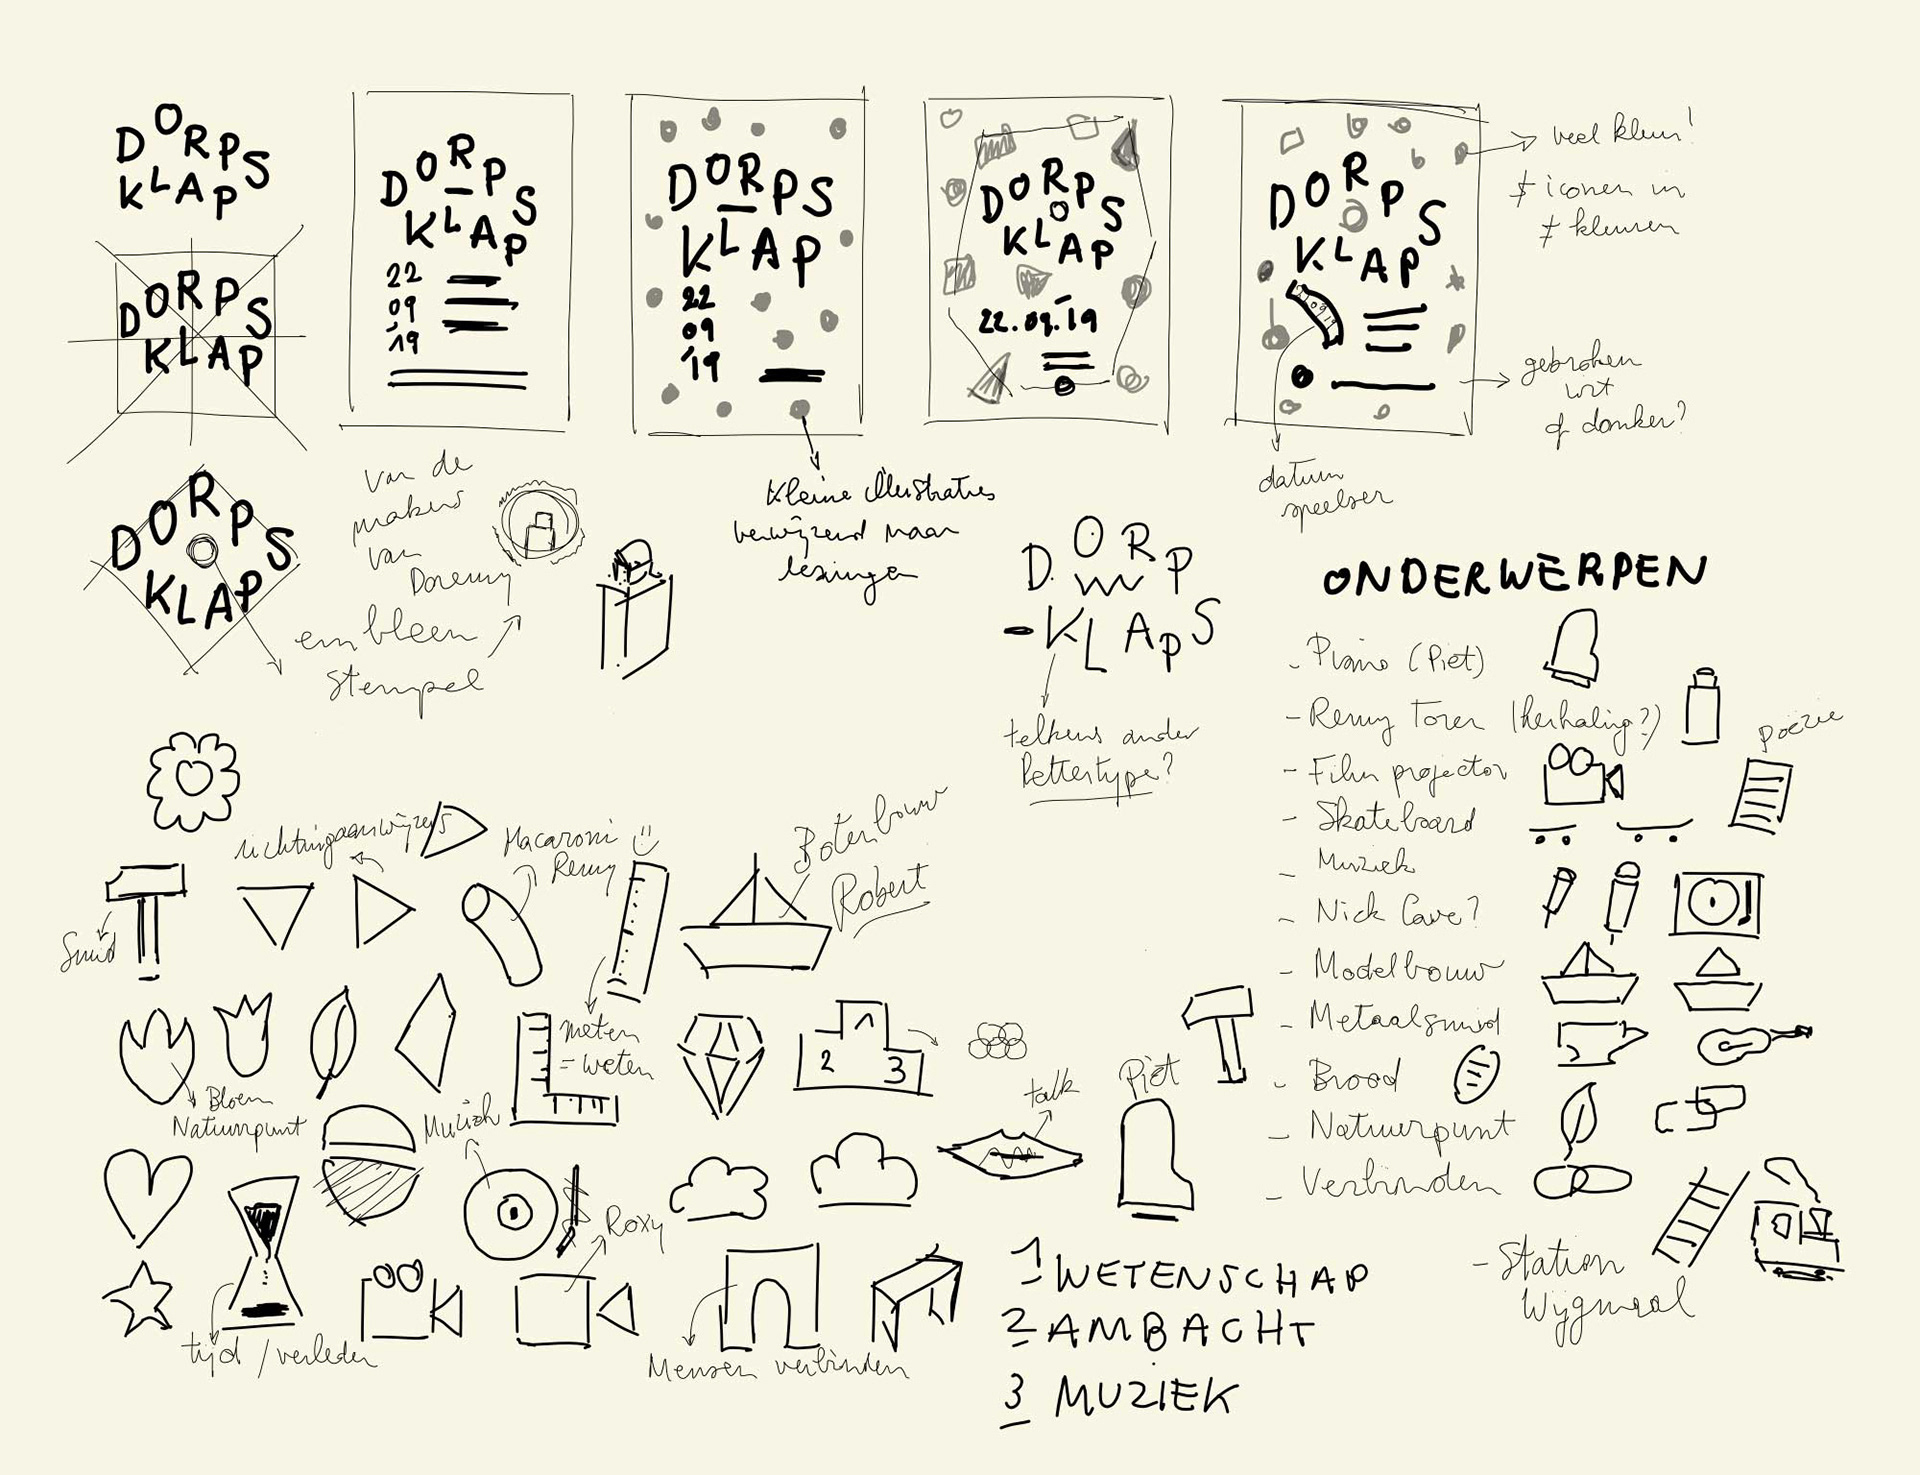 DORPS
KLAP
DORPS
KLAP
DORPS
KLAP
DORPS
KLAP
22
09
'19
DORPS
KLAP
22
09
'19
DORPS
KLAP
22.09.'19
DORPS
KLAP
veel kleur!
≠ iconen in
≠ kleuren
gebroken
wit
of donker?
datum
speelser
van de
makers
van
Doremy
embleem
stempel
kleine illustraties
verwijzend naar
lezingen
DORP
-KLAPS
telkens ander
lettertype?
ONDERWERPEN
- Piano (Piet)
- Remy Toren (herhaling?)
poëzie
- Film projector
- Skateboard
- Muziek
- Nick Cave?
- Modelbouw
- Metaalsmid
- Brood
- Natuurpunt
- Verbinden
- Station
Wijgmaal
richtingaanwijzers
Macaroni
Remy
Botenbouw
Robert
Smid
meten
= weten
1
2
3
Bloem
Natuurpunt
Muziek
talk
Piet
Roxy
tijd / verleden
Mensen verbinden
1 WETENSCHAP
2 AMBACHT
3 MUZIEK